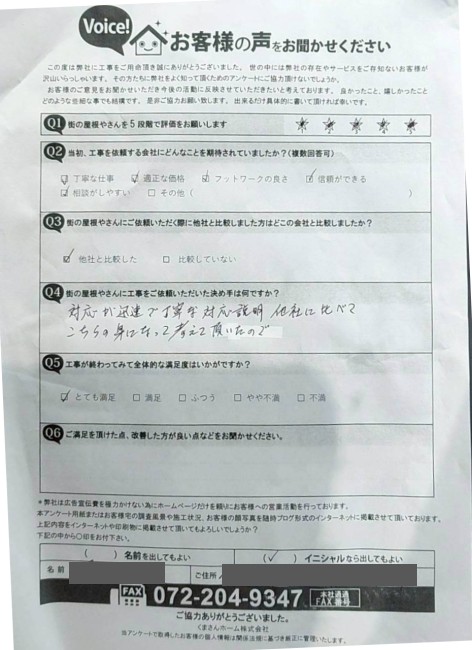 Voice!
お客様の声をお聞かせください
この度は弊社に工事をご用命頂き誠にありがとうございました。 世の中には弊社の存在やサービスをご存知ないお客様が
沢山いらっしゃいます。 その方たちに弊社をよく知って頂くためのアンケートにご協力頂けないでしょうか。
お客様のご意見をお聞かせいただき今後の活動に反映させていただきたいと考えております。 良かったこと、嬉しかったこと
どのような些細な事でも結構です。 是非ご協力お願い致します。 出来るだけ具体的に書いて頂ければ幸いです。
Q1 街の屋根やさんを5段階で評価をお願いします
Q2 当初、工事を依頼する会社にどんなことを期待されていましたか?(複数回答可)
☑ 丁寧な仕事 ☑ 適正な価格 ☑ フットワークの良さ ☑ 信頼ができる
☑ 相談がしやすい □ その他 ( )
Q3 街の屋根やさんにご依頼いただく際に他社と比較しました方はどこの会社と比較しましたか?
☑ 他社と比較した □ 比較していない
Q4 街の屋根やさんに工事をご依頼いただいた決め手は何ですか?
対応が迅速で丁寧な対応、説明 他社に比べて
こちらの身になって考えて頂いたので
Q5 工事が終わってみて全体的な満足度はいかがですか?
☑ とても満足 □ 満足 □ ふつう □ やや不満 □ 不満
Q6 ご満足を頂けた点、改善した方が良い点などをお聞かせください。
*弊社は広告宣伝費を極力かけない為にホームページだけを頼りにお客様への営業活動を行っております。
本アンケート用紙またはお客様宅の調査風景や施工状況、お客様の顔写真を随時ブログ形式のインターネットに掲載させて頂いております。
上記内容をインターネットや印刷物に掲載させて頂いてもよろしいでしょうか?
下記の中から○印をお付下さい。
( ) 名前を出してもよい (✓) イニシャルなら出してもよい
名前 ご住所
FAX 072-204-9347 本社直通 FAX番号
ご協力ありがとうございました。
くまさんホーム株式会社
当アンケートで取得したお客様の個人情報は関係法様に基づき厳正に管理いたします。